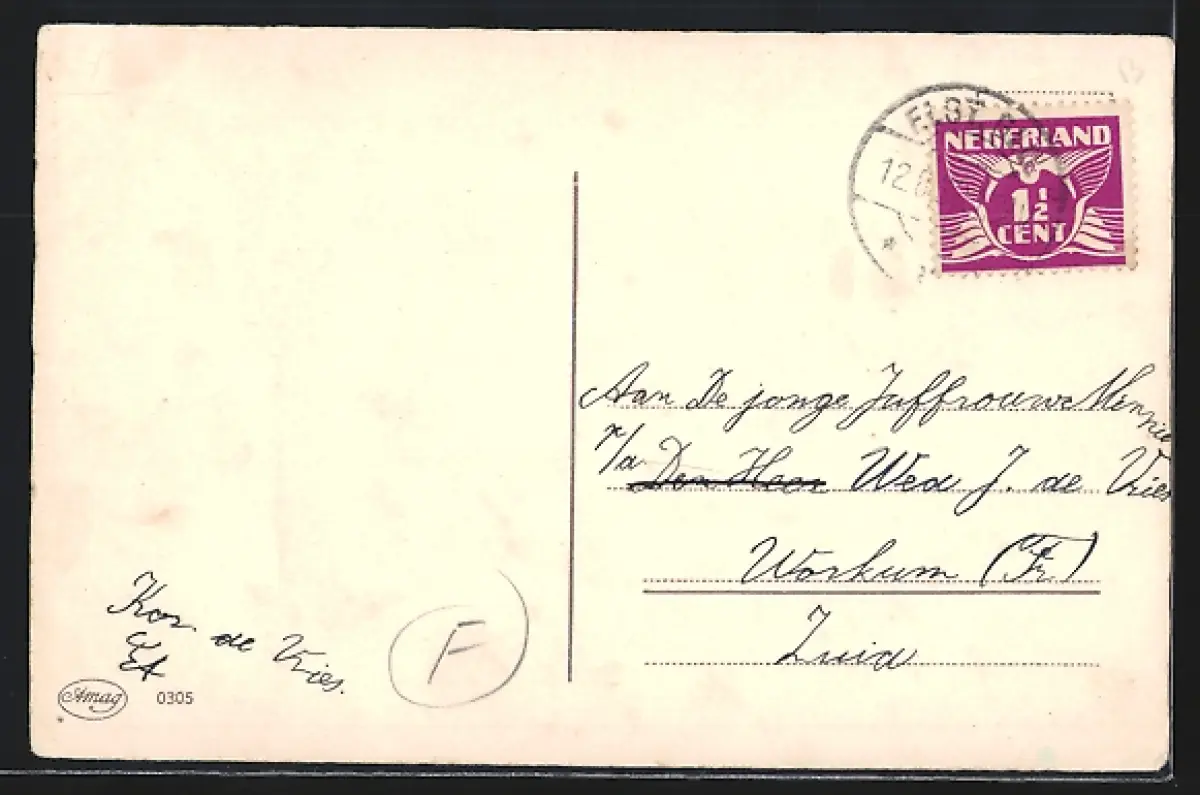 ELST
12.
NEDERLAND
1½
CENT
Aan De jonge Juffrouw Minnie
p/a Den Heer Wed J. de Vries
Workum (Fr)
Zuid
Kor. de Vries.
F
Amag 0305